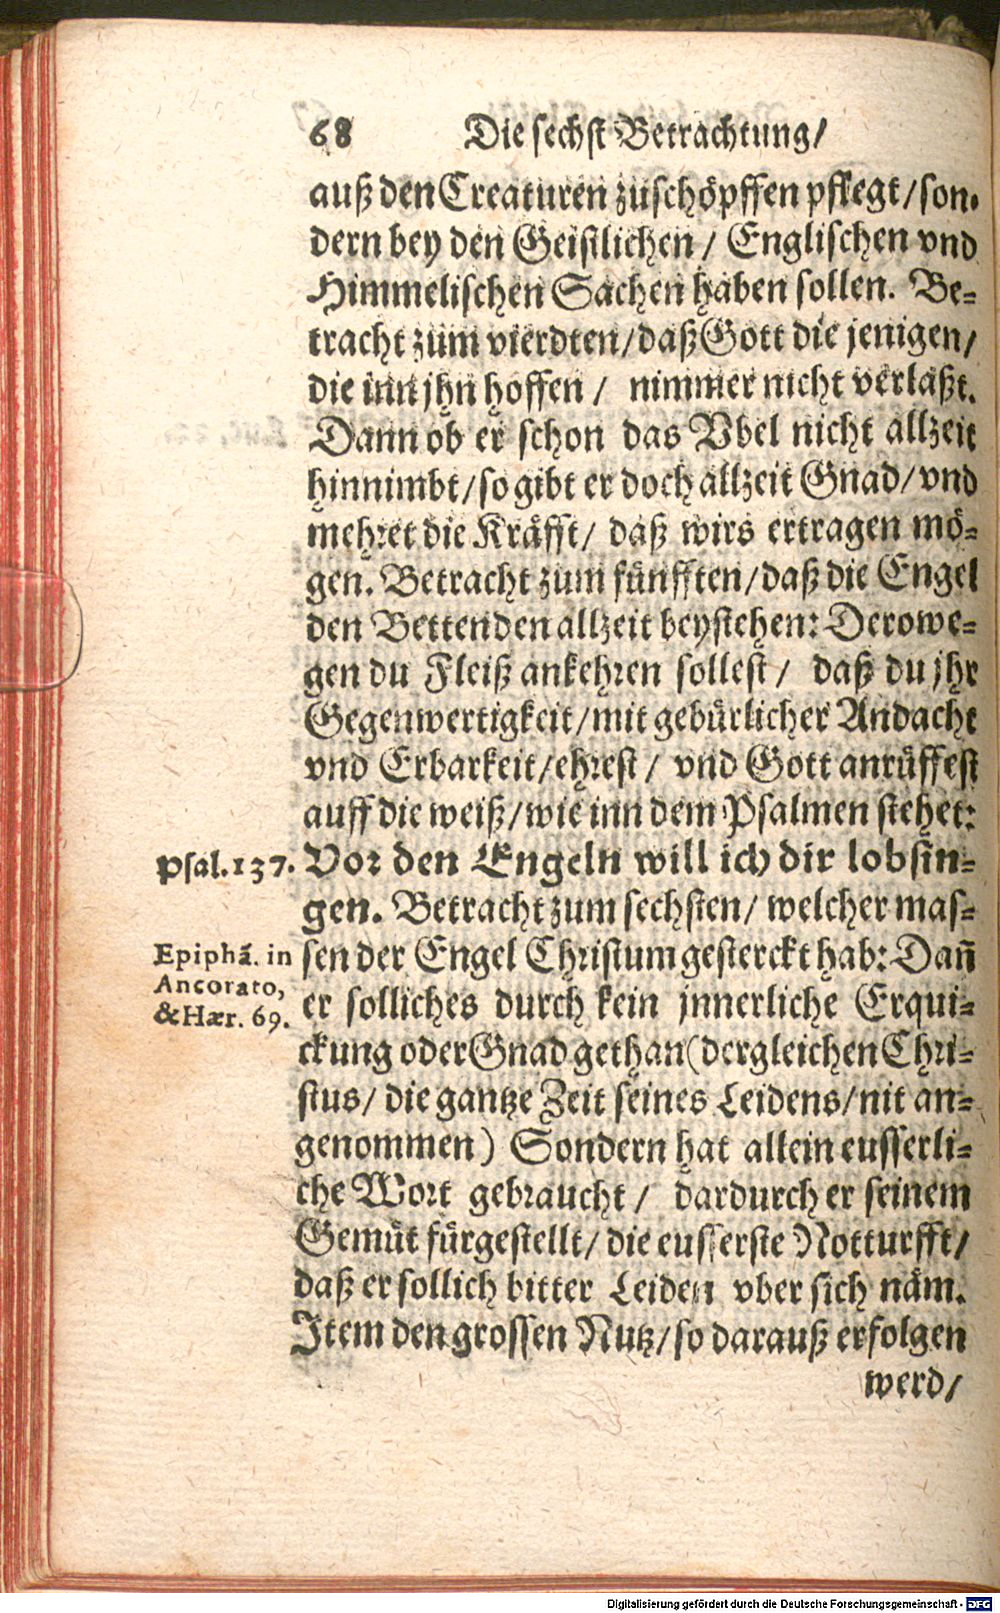 68 Die sechst Betrachtung/
auß den Creaturen zuschöpffen pflegt/son-
dern bey den Geistlichen / Englischen vnd
Himmelischen Sachen haben sollen. Be-
tracht zum vierdten/daß Gott die jenigen/
die inn jhn hoffen / nimmer nicht verlaßt.
Dann ob er schon das Vbel nicht allzeit
hinnimbt/so gibt er doch allzeit Gnad/vnd
mehret die Kräfft/ daß wirs ertragen mö-
gen. Betracht zum fünfften/daß die Engel
den Bettenden allzeit beystehen: Derowe-
gen du Fleiß ankehren sollest / daß du jhr
Gegenwertigkeit/mit gebürlicher Andacht
vnd Erbarkeit/ehrest / vnd Gott anrüffest
auff die weiß/wie inn dem Psalmen stehet:
Psal.137. Vor den Engeln will ich dir lobsin-
gen. Betracht zum sechsten/ welcher mas-
Epiphã. in sen der Engel Christum gesterckt hab: Dañ
Ancorato,
er solliches durch kein jnnerliche Erqui-
&Hær. 69.
ckung oder Gnad gethan (dergleichen Chri-
stus/ die gantze Zeit seines Leidens/nit an-
genommen) Sondern hat allein eusserli-
che Wort gebraucht / dardurch er seinem
Gemüt fürgestellt/ die eusserste Notturfft/
daß er sollich bitter Leiden vber sich näm.
Item den grossen Nutz/so darauß erfolgen
werd/
Digitalisierung gefördert durch die Deutsche Forschungsgemeinschaft - DFG